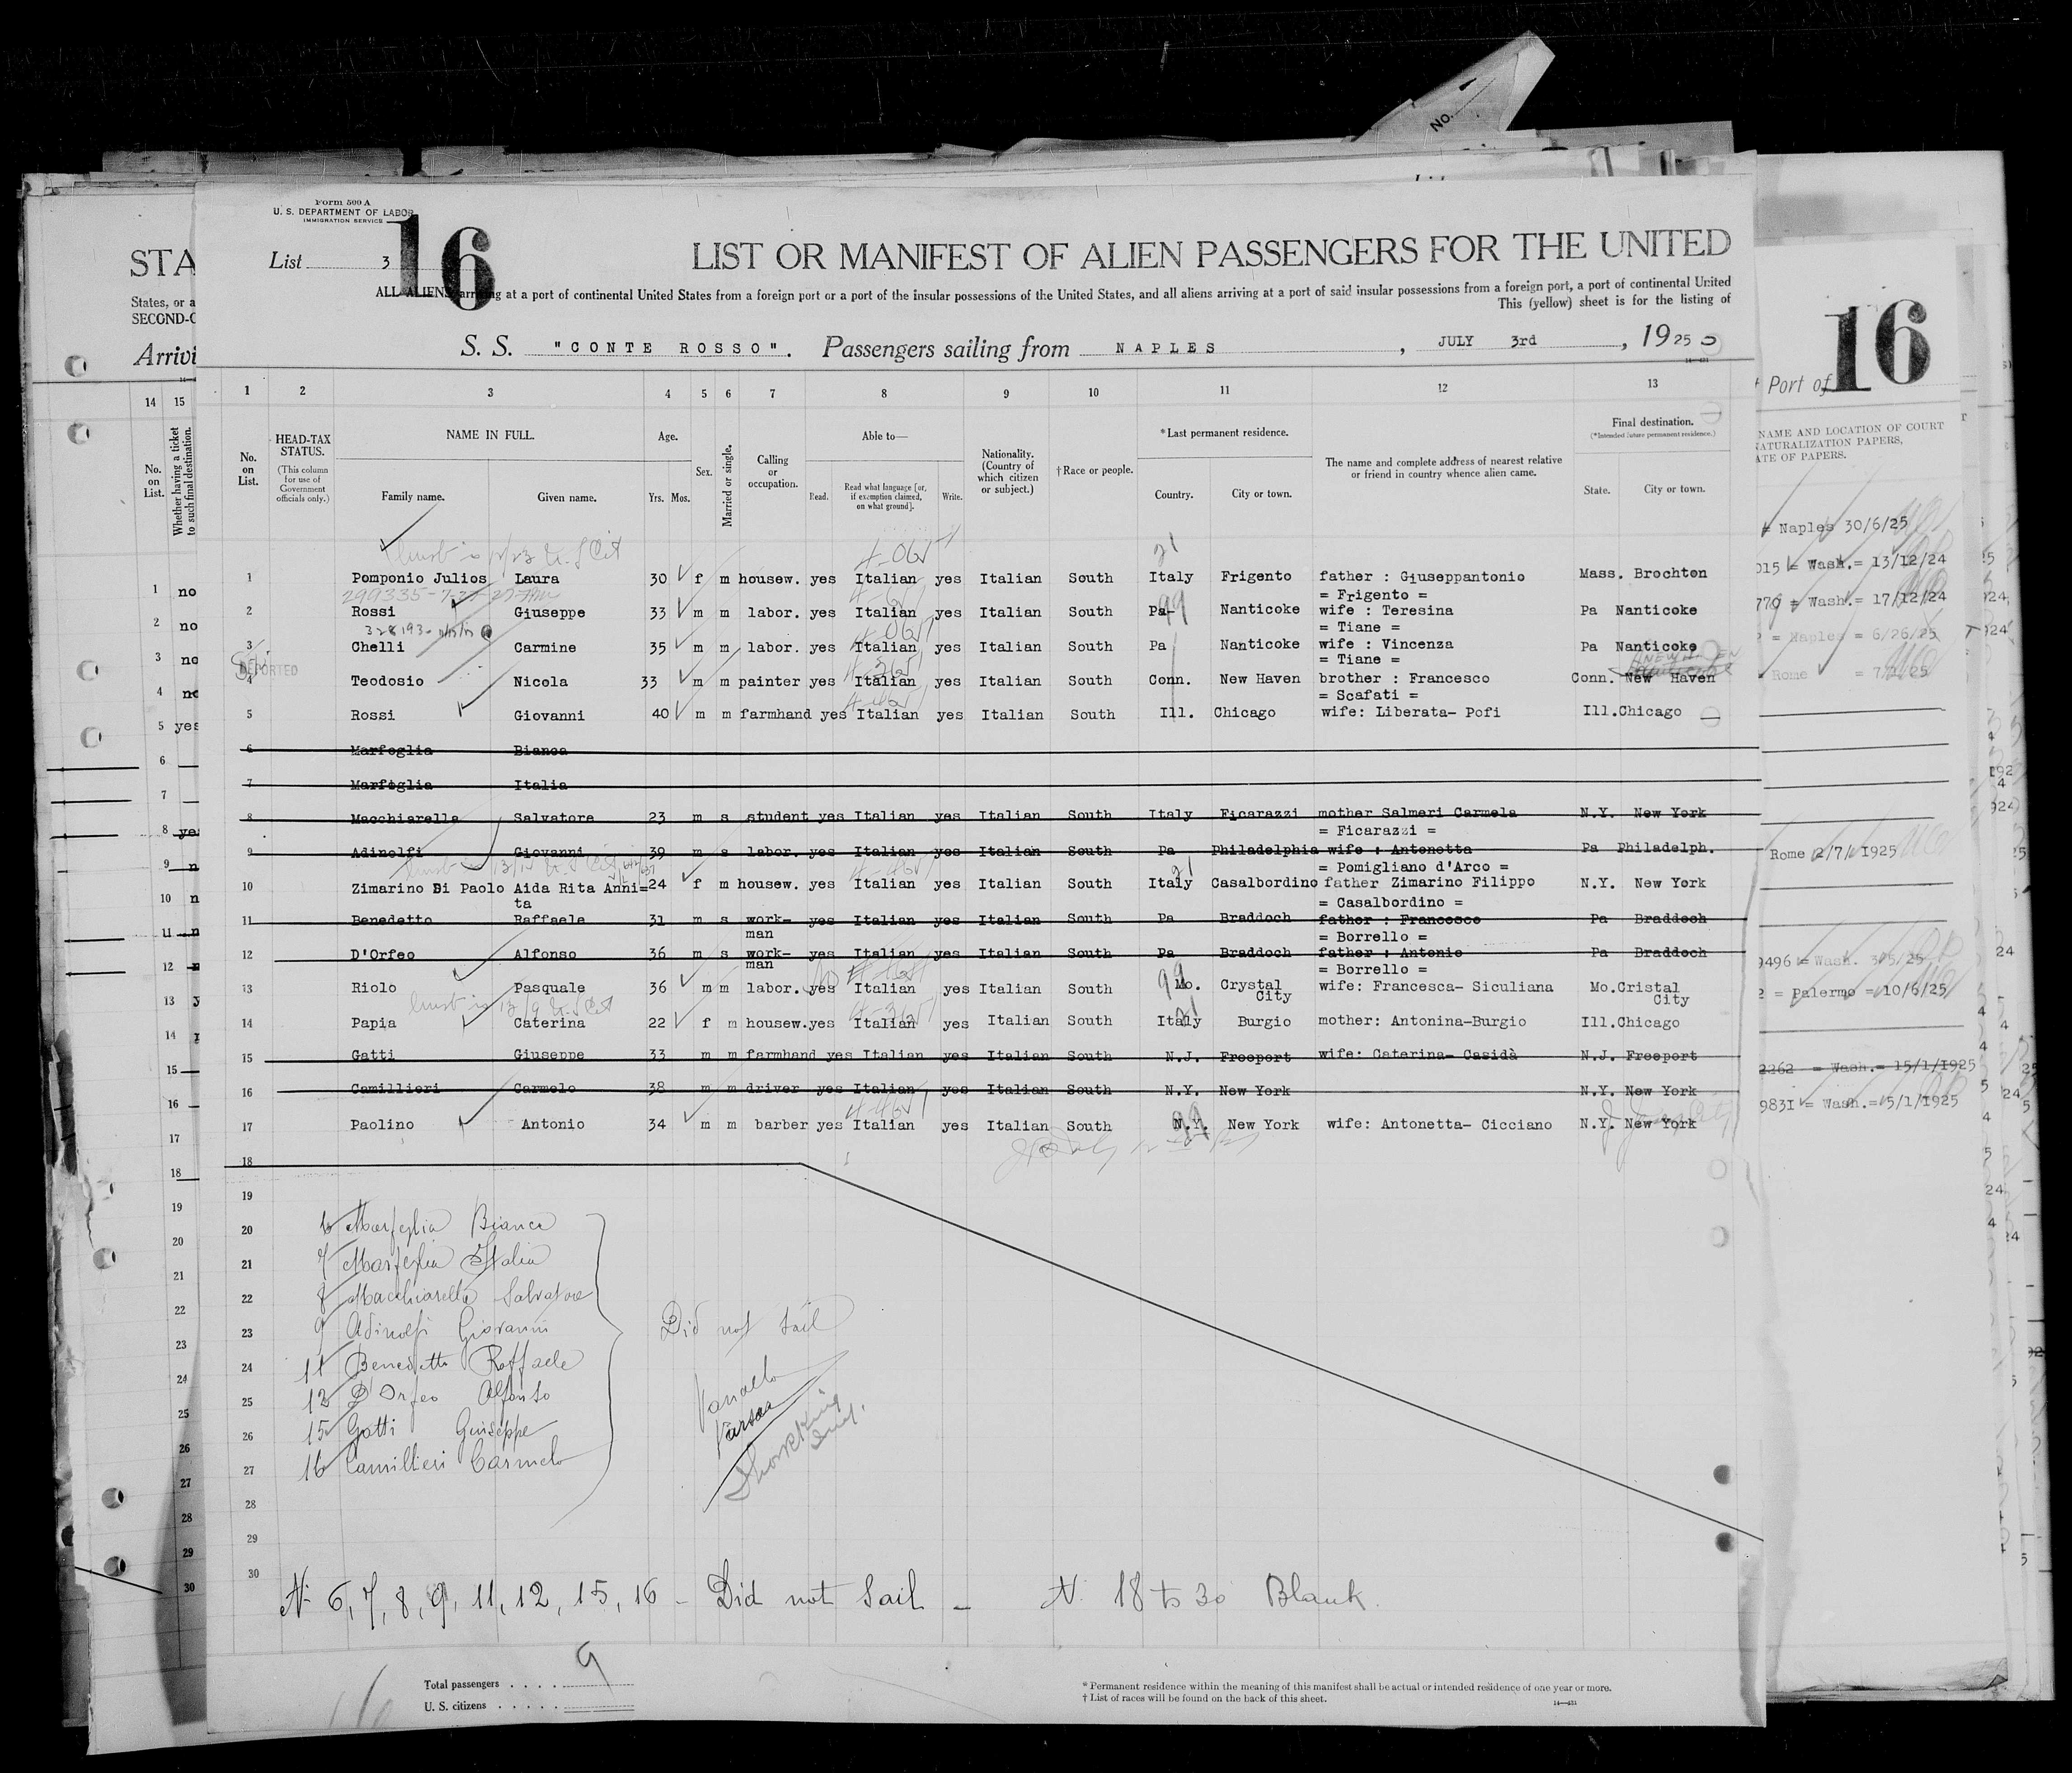 Form 500 A
U. S. DEPARTMENT OF LABOR
IMMIGRATION SERVICE
No.
16
List 3
LIST OR MANIFEST OF ALIEN PASSENGERS FOR THE UNITED
ALL ALIENS arriving at a port of continental United States from a foreign port or a port of the insular possessions of the United States, and all aliens arriving at a port of said insular possessions from a foreign port, a port of continental United
This (yellow) sheet is for the listing of
S. S. "CONTE ROSSO". Passengers sailing from NAPLES, JULY 3rd, 1925
1 2 3 4 5 6 7 8 9 10 11 12 13
No. on List.
HEAD-TAX STATUS.
(This column for use of Government officials only.)
NAME IN FULL.
Family name. Given name.
Age.
Yrs. Mos.
Sex.
Married or single.
Calling or occupation.
Able to—
Read. Read what language [or, if exemption claimed, on what ground]. Write.
Nationality. (Country of which citizen or subject.)
†Race or people.
*Last permanent residence.
Country. City or town.
The name and complete address of nearest relative or friend in country whence alien came.
Final destination.
(*Intended future permanent residence.)
State. City or town.
1 Pomponio Julios Laura 30 f m housew. yes Italian yes Italian South Italy Frigento father : Giuseppantonio Mass. Brochton
= Frigento =
2 Rossi Giuseppe 33 m m labor. yes Italian yes Italian South Pa- Nanticoke wife : Teresina Pa Nanticoke
= Tiane =
3 Chelli Carmine 35 m m labor. yes Italian yes Italian South Pa Nanticoke wife : Vincenza Pa Nanticoke
= Tiane =
DEPORTED
4 Teodosio Nicola 33 m m painter yes Italian yes Italian South Conn. New Haven brother : Francesco Conn. New Haven
= Scafati =
5 Rossi Giovanni 40 m m farmhand yes Italian yes Italian South Ill. Chicago wife: Liberata- Pofi Ill.Chicago
6 Marfeglia Bianca
7 Marfeglia Italia
8 Macchiarella Salvatore 23 m s student yes Italian yes Italian South Italy Ficarazzi mother Salmeri Carmela N.Y. New York
= Ficarazzi =
9 Adinolfi Giovanni 39 m s labor. yes Italian yes Italian South Pa Philadelphia wife : Antonetta Pa Philadelph.
= Pomigliano d'Arco =
10 Zimarino Di Paolo Aida Rita Anni= 24 f m housew. yes Italian yes Italian South Italy Casalbordino father Zimarino Filippo N.Y. New York
ta = Casalbordino =
11 Benedetto Raffaele 31 m s work- yes Italian yes Italian South Pa Braddoch father : Francesco Pa Braddoch
man = Borrello =
12 D'Orfeo Alfonso 36 m s work- yes Italian yes Italian South Pa Braddoch father : Antonio Pa Braddoch
man = Borrello =
13 Riolo Pasquale 36 m m labor. yes Italian yes Italian South Mo. Crystal wife: Francesca- Siculiana Mo.Cristal
City City
14 Papia Caterina 22 f m housew.yes Italian yes Italian South Italy Burgio mother: Antonina-Burgio Ill.Chicago
15 Gatti Giuseppe 33 m m farmhand yes Italian yes Italian South N.J. Freeport wife: Catarina- Casidà N.J. Freeport
16 Camillieri Carmelo 38 m m driver yes Italian yes Italian South N.Y. New York N.Y. New York
17 Paolino Antonio 34 m m barber yes Italian yes Italian South N.Y. New York wife: Antonetta- Cicciano N.Y. New York
18
19
20
21
22
23
24
25
26
27
28
29
30
6 Marfeglia Bianca
7 Marfeglia Italia
8 Macchiarella Salvatore
9 Adinolfi Giovanni
11 Benedetto Raffaele
12 D'Orfeo Alfonso
15 Gatti Guiseppe
16 Camillieri Carmelo
Did not sail
N. 6, 7, 8, 9, 11, 12, 15, 16 - Did not sail - N. 18 to 30 Blank.
Total passengers . . . . 9
U. S. citizens . . . . .
* Permanent residence within the meaning of this manifest shall be actual or intended residence of one year or more.
† List of races will be found on the back of this sheet.
STA
States, or a
SECOND-C
Arrivi
14 15
No. on List.
Whether having a ticket to such final destination.
1 no
2 no
3 no
4 no
5 yes
6
7
8 ye
9 n
10 n
11 n
12 n
13 y
14
15
16
17
18
19
20
21
22
23
24
25
26
27
28
29
30
16
Port of
NAME AND LOCATION OF COURT
NATURALIZATION PAPERS,
ATE OF PAPERS.
= Naples 30/6/25
015 = Wash.= 13/12/24
770 = Wash.= 17/12/24
= Naples = 6/26/25
Rome = 7/1/25
Rome 2/7/1925
9496 = Wash. 3/5/25
2 = Palermo = 10/6/25
2262 = Wash.= 15/1/1925
9831 = Wash.= 5/1/1925